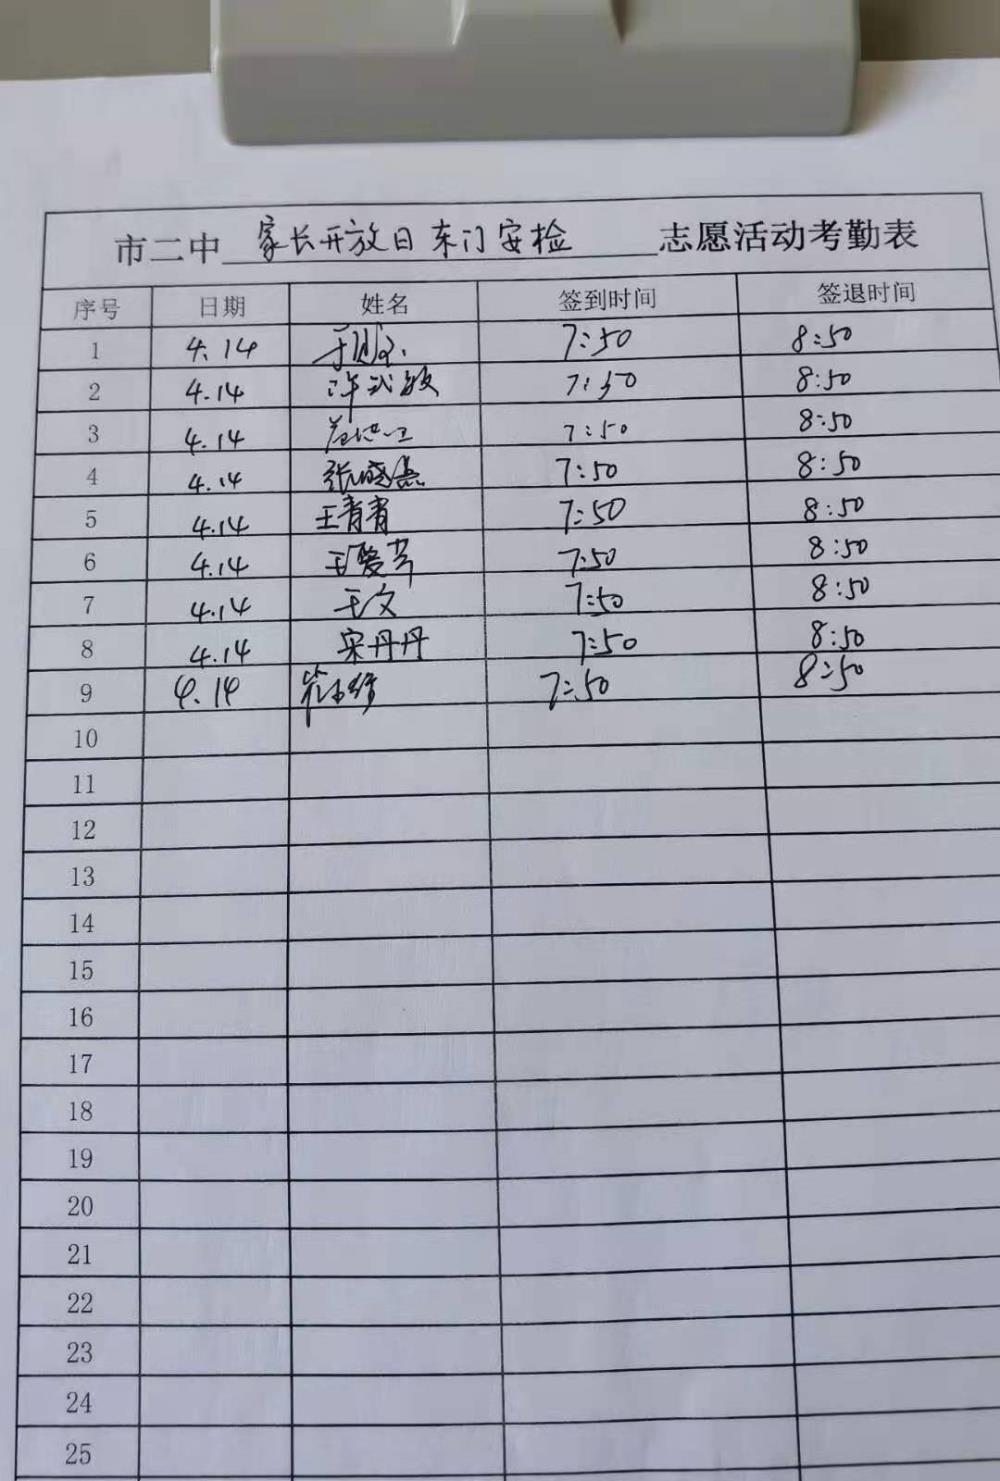 市二中 家长开放日东门安检 志愿活动考勤表
序号 日期 姓名 签到时间 签退时间
1 4.14 7:50 8:50
2 4.14 7:50 8:50
3 4.14 7:50 8:50
4 4.14 张晓燕 7:50 8:50
5 4.14 王青青 7:50 8:50
6 4.14 7:50 8:50
7 4.14 于文 7:50 8:50
8 4.14 宋丹丹 7:50 8:50
9 4.14 7:50 8:50
10
11
12
13
14
15
16
17
18
19
20
21
22
23
24
25